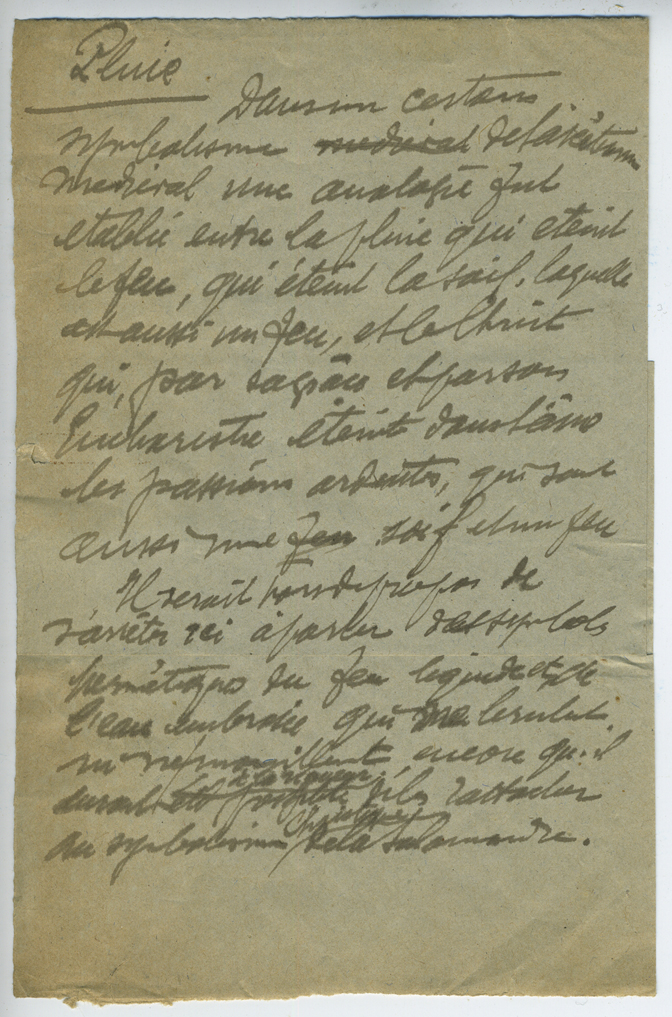 Pluie.
Dans un certain
symbolisme medieval de la
medieval une analogie fut
etablie entre la pluie qui eteint
le feu, qui éteint la soif, laquelle
est aussi un feu, et le Christ
qui, par sa grâce et par son
Eucharistie éteint dans l'âme
les passions ardentes, qui sont
aussi une feu soif et un feu
Il serait hors de propos de
s'arrêter ici à parler des symboles
hermétiques du feu liquide et de
l'eau qui ne brulent
ni ne mouillent, encore qu'il
à la rigueur les rattacher
au symbolisme chrétien de la salamandre.